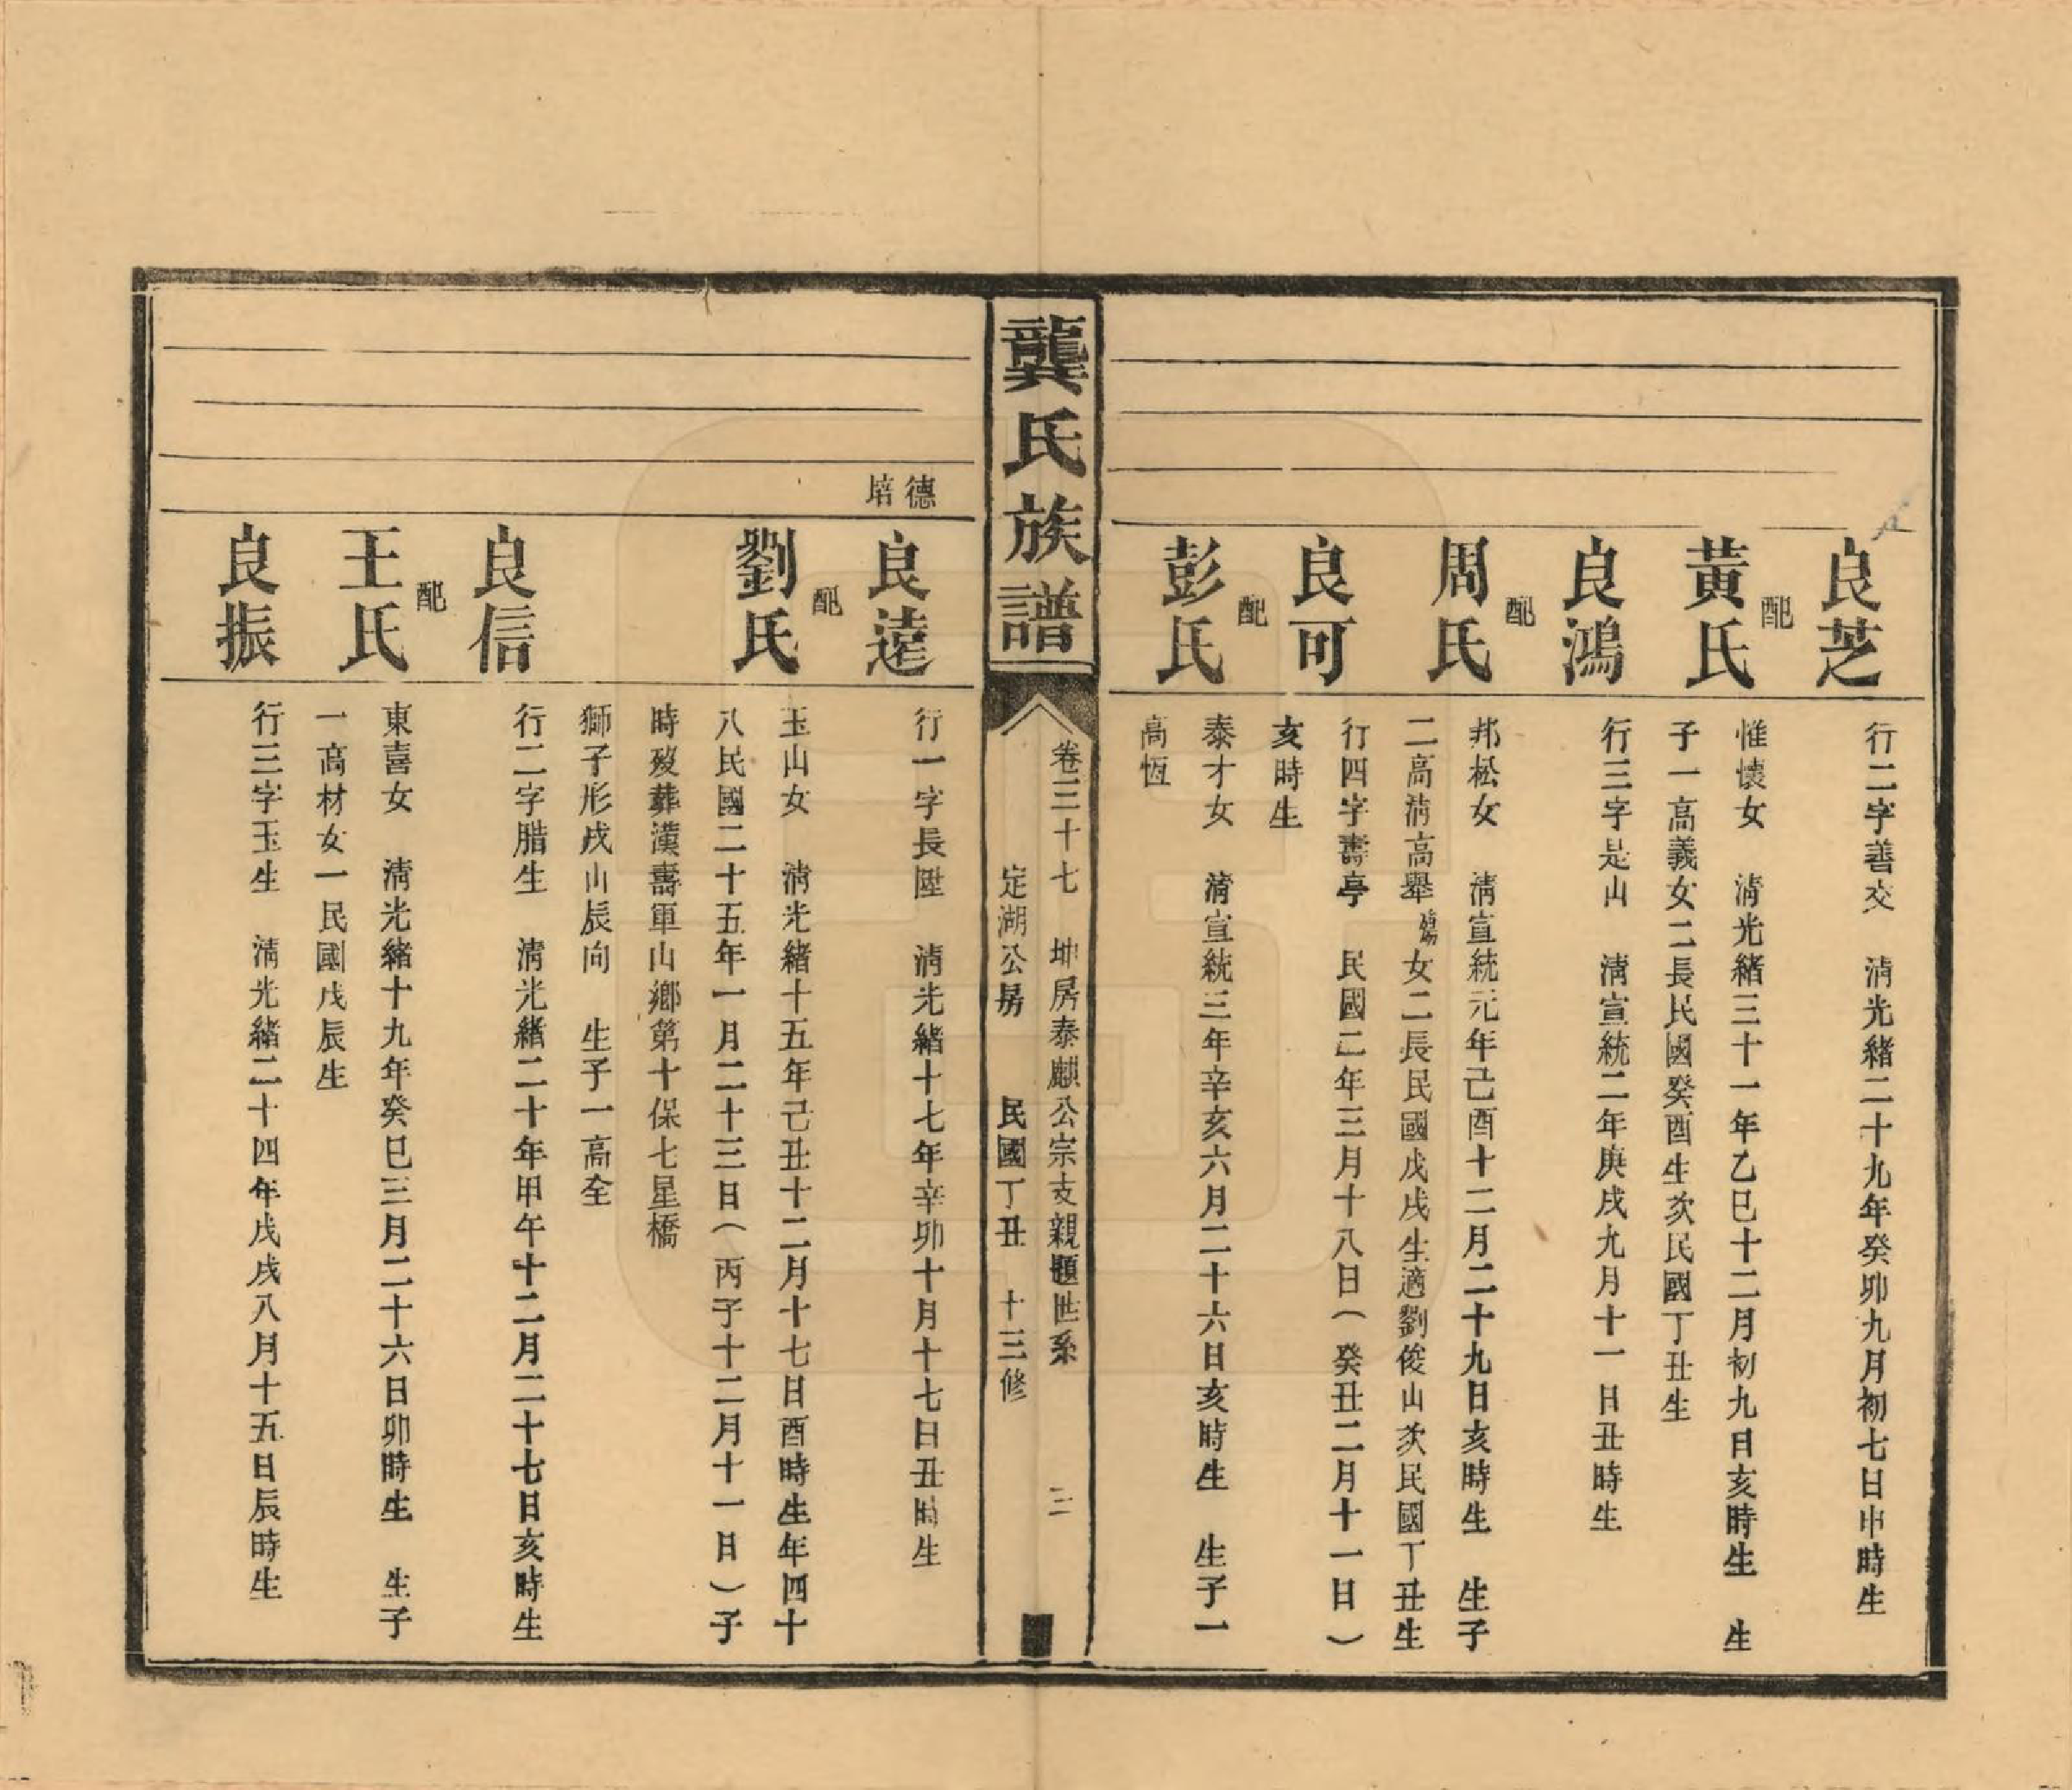 良芝
行二字善交　清光緒二十九年癸卯九月初七日申時生
配
黃氏
惟懷女　清光緒三十一年乙巳十二月初九日亥時生　生
子一高義女二長民國癸酉生次民國丁丑生
良鴻
行三字是山　清宣統二年庚戌九月十一日丑時生
配
周氏
邦松女　清宣統元年己酉十二月二十九日亥時生　生子
二高清高舉女二長民國戊戌生適劉俊山次民國丁丑生
良可
行四字壽亭　民國二年三月十八日（癸丑二月十一日）
亥時生
配
彭氏
泰才女　清宣統三年辛亥六月二十六日亥時生　生子一
高恆
龔氏族譜
卷三十七　坤房泰麒公宗支親題世系　三
定湖公房　民國丁丑　十三修
德
培
良遠
行一字長陞　清光緒十七年辛卯十月十七日丑時生
配
劉氏
玉山女　清光緒十五年己丑十二月十七日酉時生年四十
八民國二十五年一月二十三日（丙子十二月十一日）子
時歿葬漢壽軍山鄉第十保七星橋
獅子形戌山辰向　生子一高全
良信
行二字腊生　清光緒二十年甲午十二月二十七日亥時生
配
王氏
東喜女　清光緒十九年癸巳三月二十六日卯時生　生子
一高材女一民國戊辰生
良振
行三字玉生　清光緒二十四年戊戌八月十五日辰時生